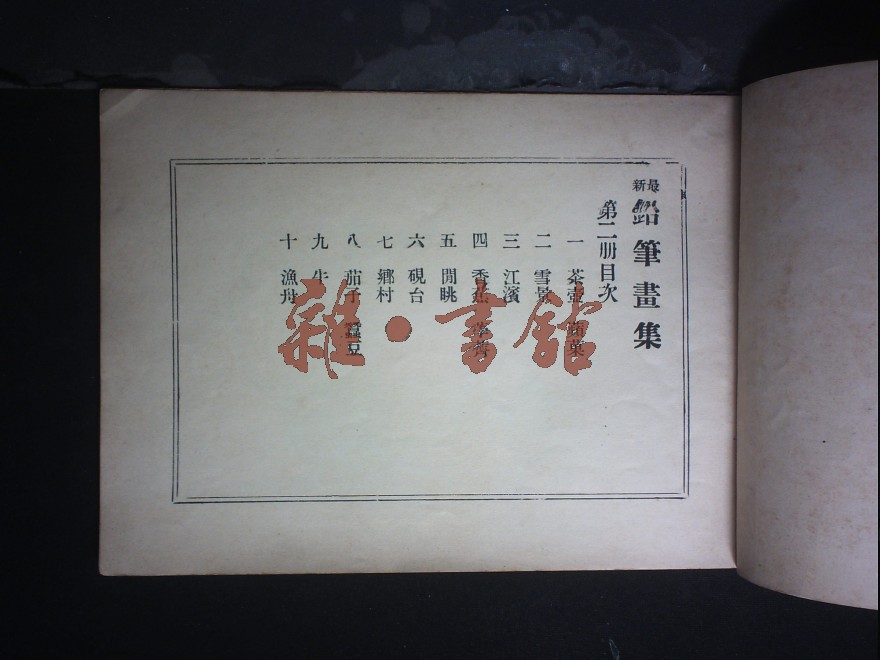 最新
鉛筆畫集
第二册目次
一 茶壺 蘋菓
二 雪景
三 江濱
四 香蕉 荸薺
五 閒眺
六 硯台
七 鄉村
八 茄子 蠶豆
九 牛
十 漁舟
雜·書館